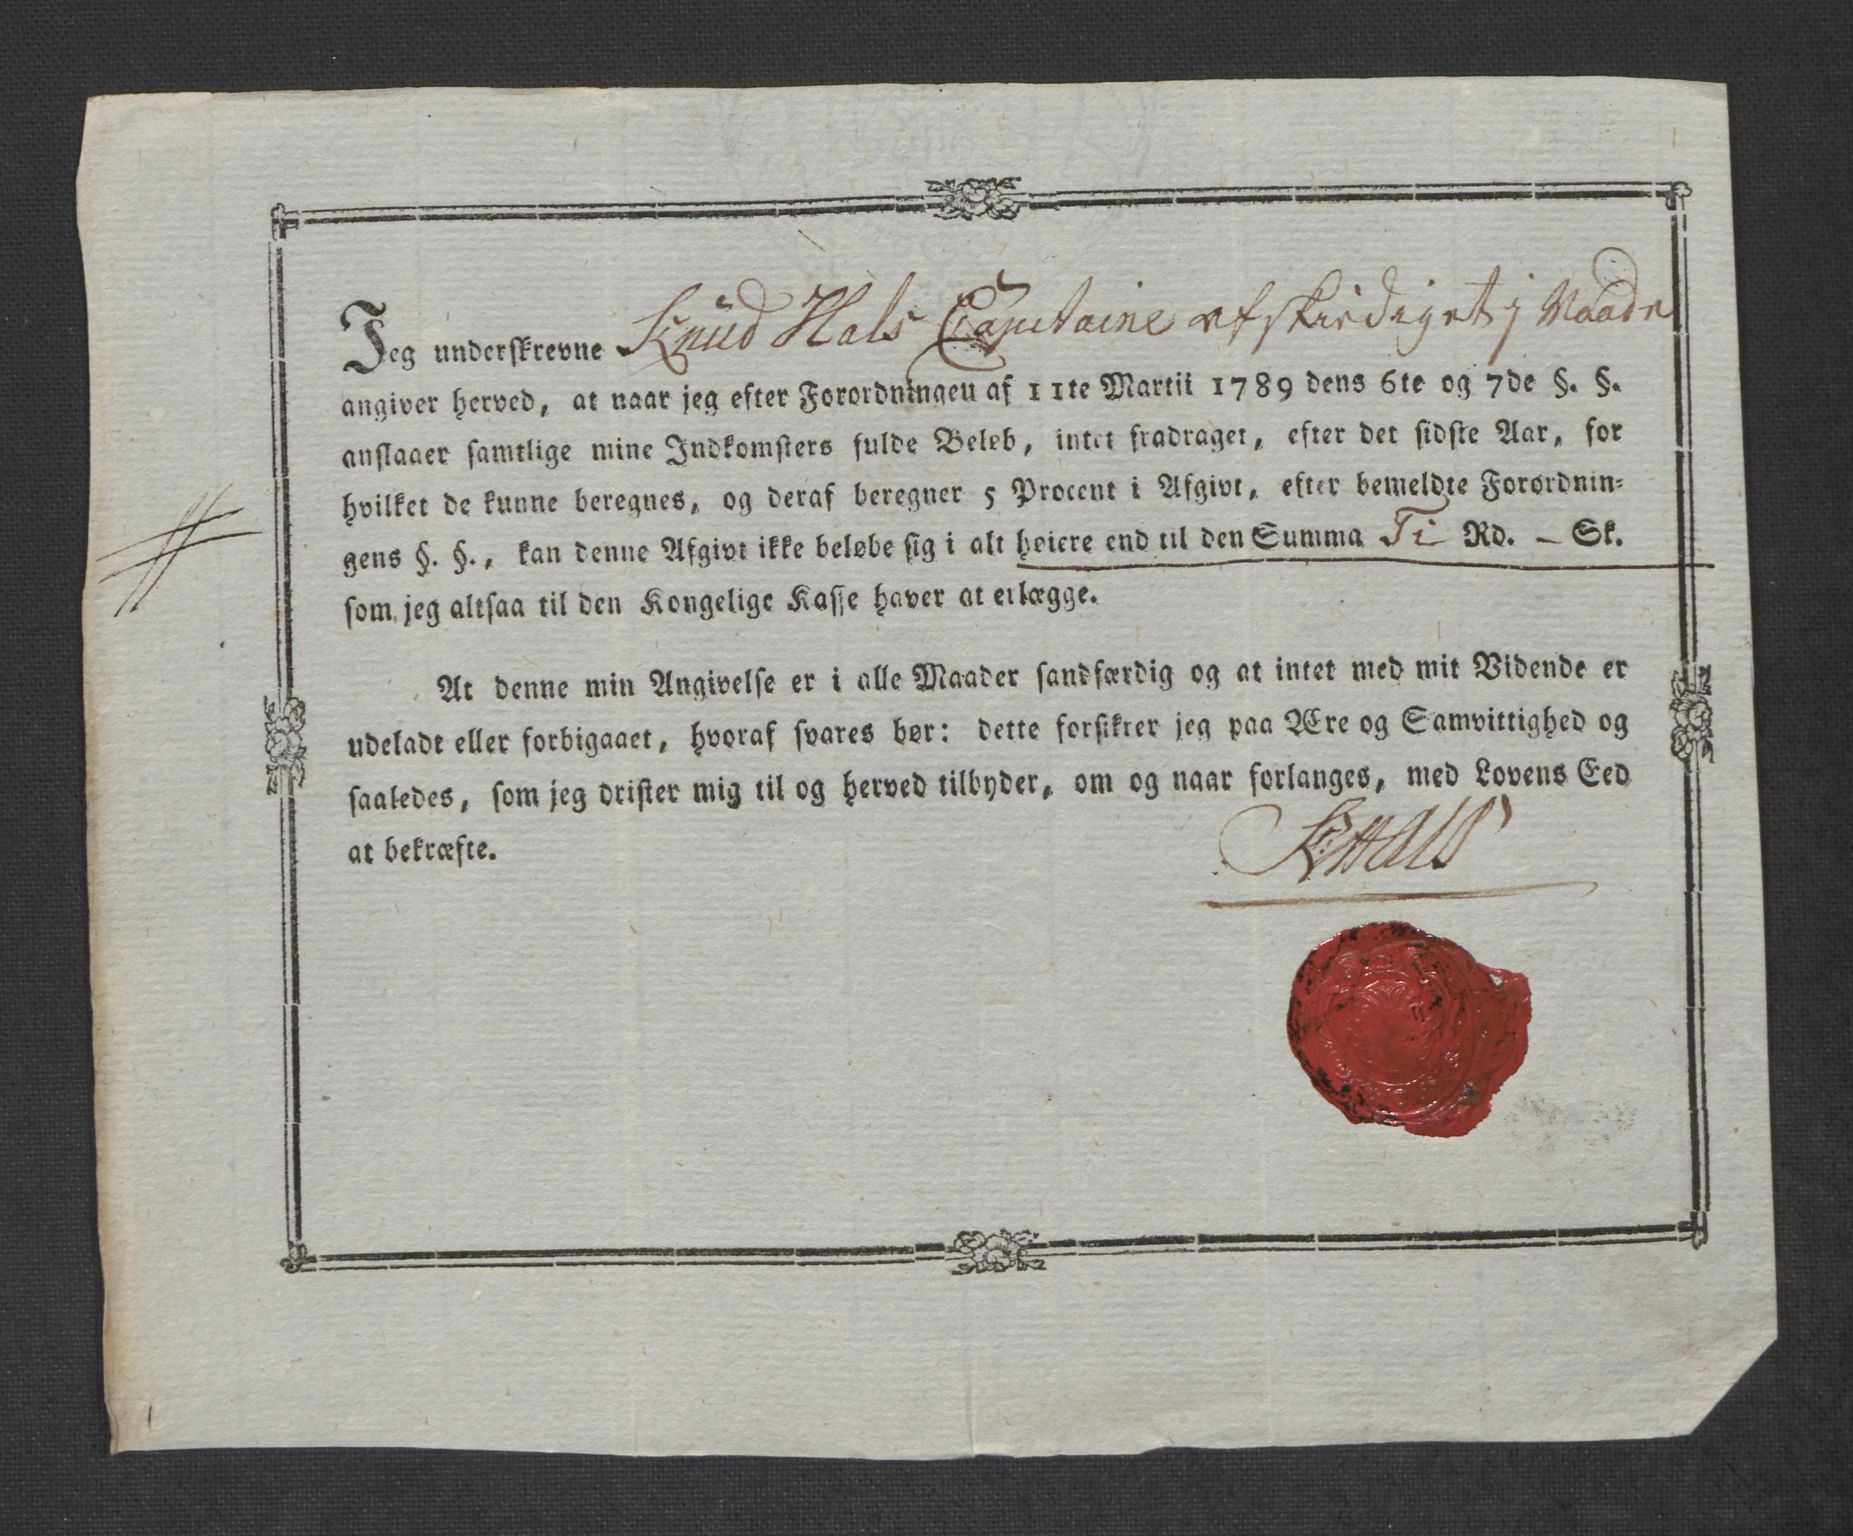 Jeg underskrevne Knud Hals Capitaine afskiediget i Naade
angiver herved, at naar jeg efter Forordningen af 11te Martii 1789 dens 6te og 7de §. §.
anslaaer samtlige mine Indkomsters fulde Beløb, intet fradraget, efter det sidste Aar, for
hvilket de kunne beregnes, og deraf beregner 5 Procent i Afgivt, efter bemeldte Forordnin-
gens §. §., kan denne Afgivt ikke beløbe sig i alt høiere end til den Summa Ti Rd. – Sk.
som jeg altsaa til den Kongelige Kasse haver at erlægge.
At denne min Angivelse er i alle Maader sandfærdig og at intet med mit Vidende er
udeladt eller forbigaaet, hvoraf svares bør: dette forsikrer jeg paa Ære og Samvittighed og
saaledes, som jeg drister mig til og herved tilbyder, om og naar forlanges, med Lovens Eed
at bekræfte.
K: Hals